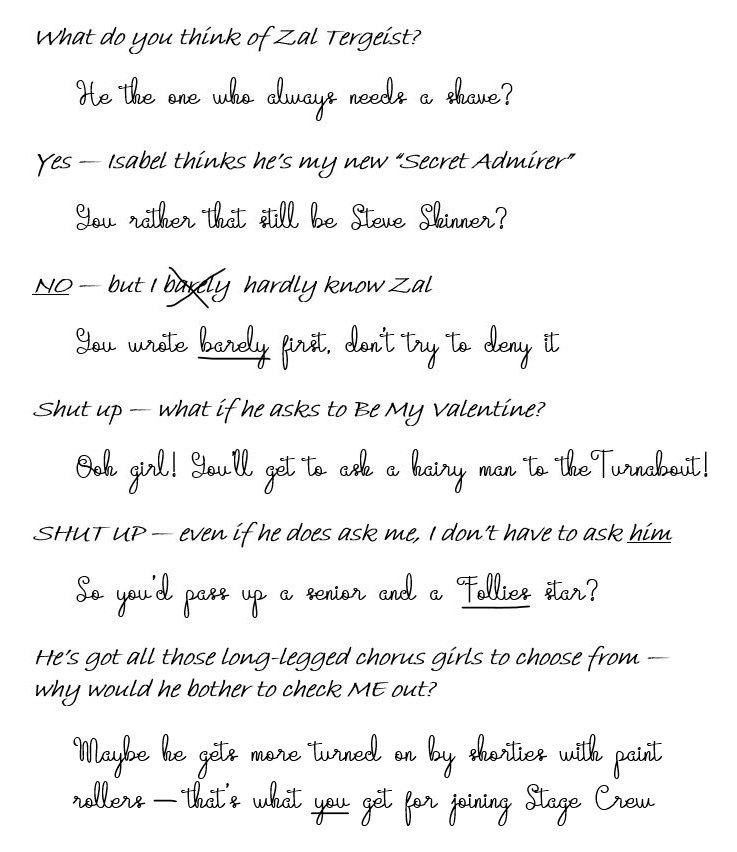 What do you think of Zal Tergeist?
He the one who always needs a shave?
Yes — Isabel thinks he's my new "Secret Admirer"
You rather that still be Steve Skinner?
NO — but I barely hardly know Zal
You wrote barely first, don't try to deny it
Shut up — what if he asks to Be My Valentine?
Ooh girl! You'll get to ask a hairy man to the Turnabout!
SHUT UP — even if he does ask me, I don't have to ask him
So you'd pass up a senior and a Follies star?
He's got all those long-legged chorus girls to choose from —
why would he bother to check ME out?
Maybe he gets more turned on by shorties with paint
rollers — that's what you get for joining Stage Crew